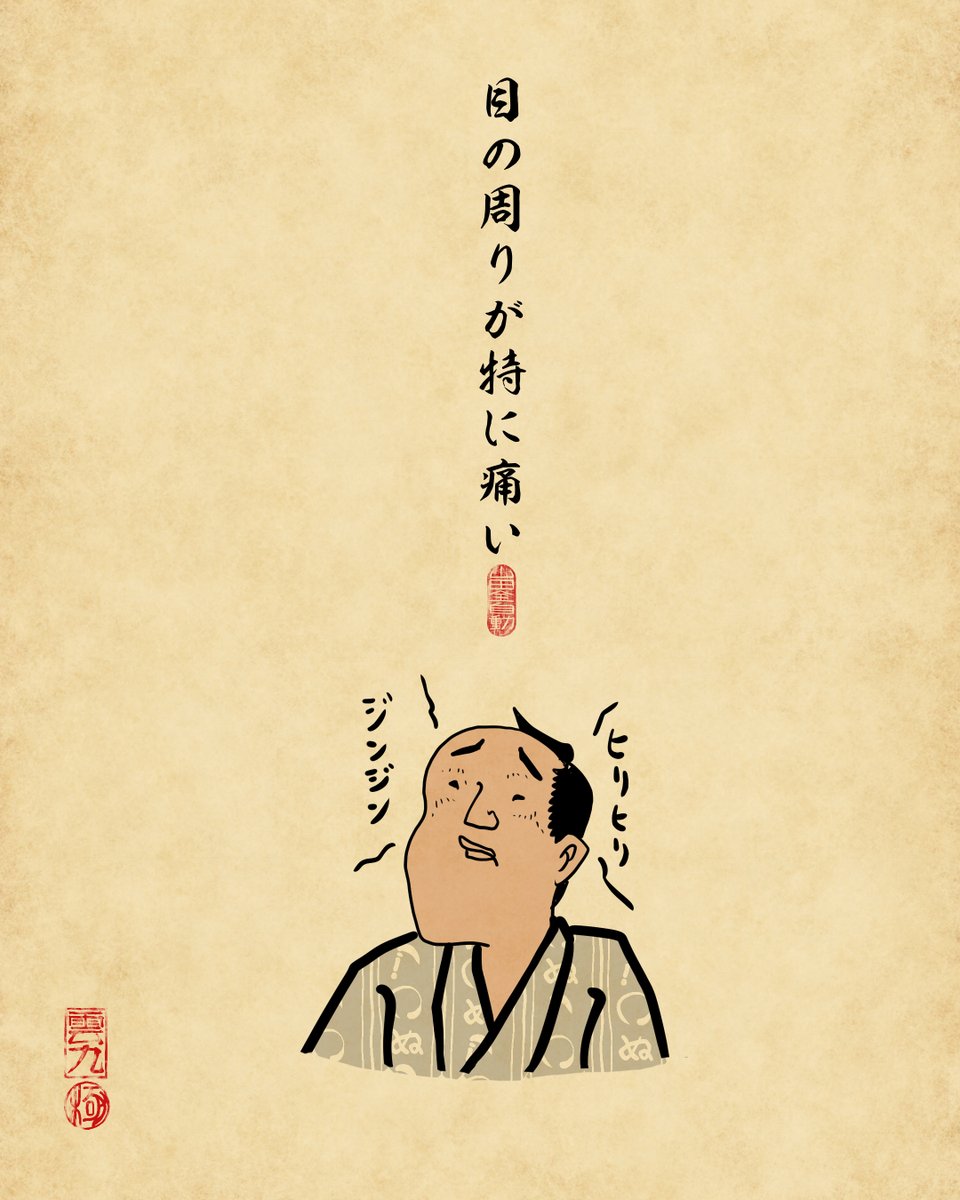 目の周りが特に痛い
ヒリヒリ
ジンジン
ぬ
ぬ
ぬ